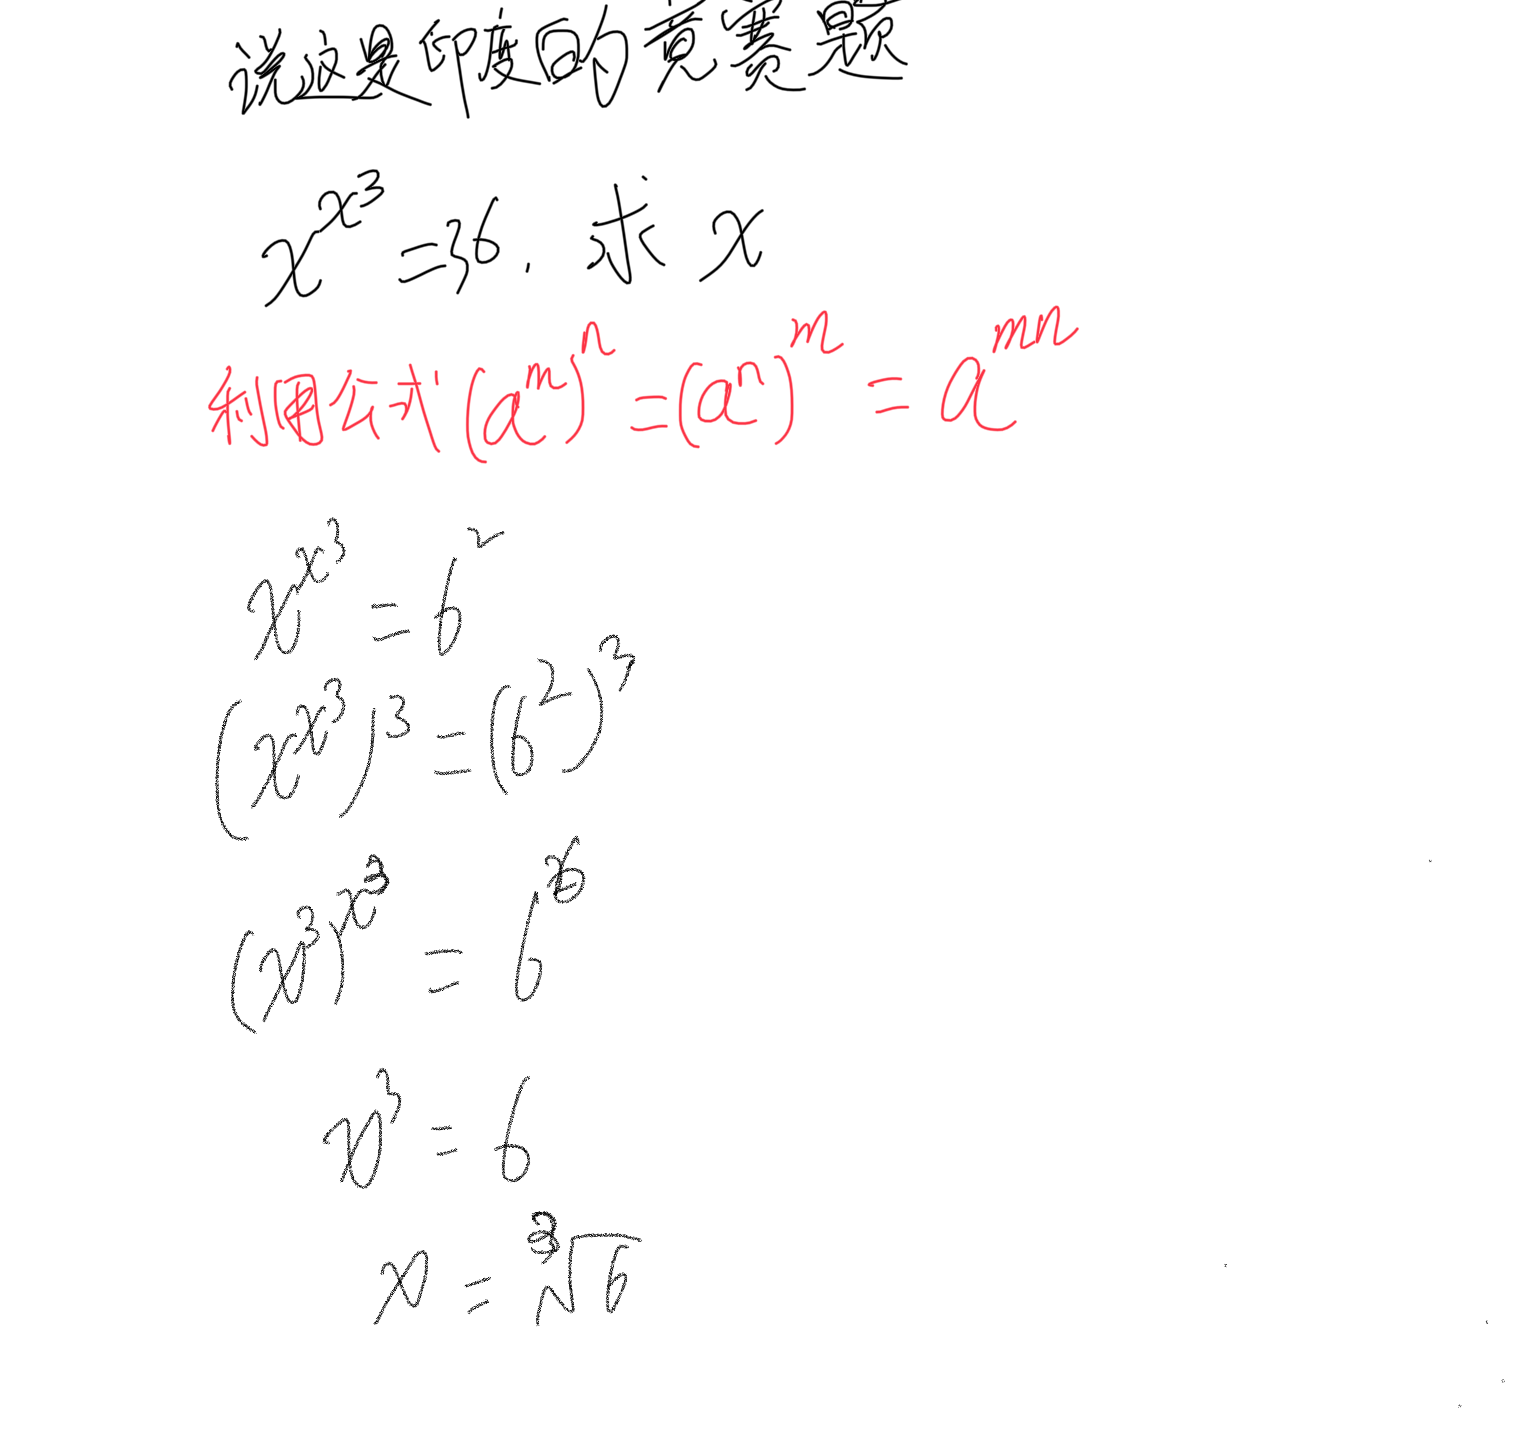 说这是印度的竞赛题
x^{x^3}=36. 求 x
利用公式 (a^m)^n = (a^n)^m = a^{mn}
x^{x^3} = 6^2
(x^{x^3})^3 = (6^2)^3
(x^3)^{x^3} = 6^6
x^3 = 6
x = ∛6